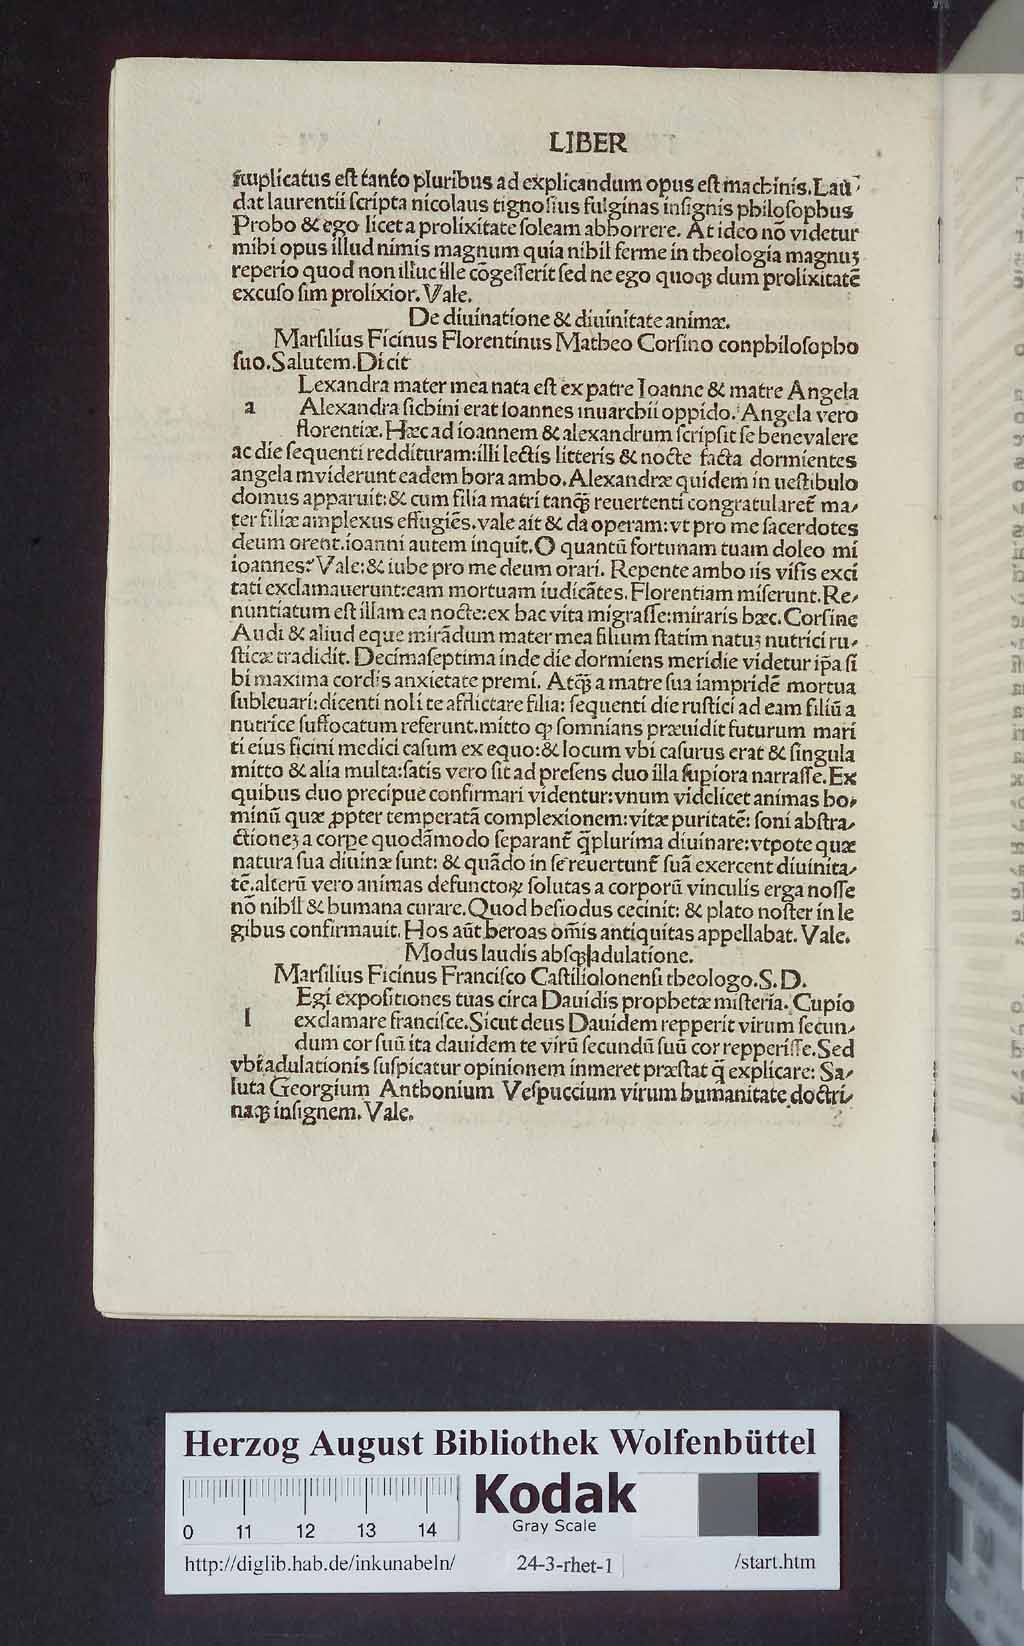 LIBER
implicatus eſt tanto pluribus ad explicandum opus eſt machinis. Lau
dat laurentii ſcripta nicolaus tignoſius fulginas inſignis philoſophus
Probo & ego licet a prolixitate ſoleam abhorrere. At ideo nõ videtur
mihi opus illud nimis magnum quia nihil ferme in theologia magnuꝫ
reperio quod non illuc ille cõgeſſerit ſed ne ego quoqꝫ dum prolixitatē
excuſo ſim prolixior. Vale.
De diuinatione & diuinitate animæ.
Marſilius Ficinus Florentinus Matheo Corſino conphiloſopho
ſuo. Salutem. Dicit
Lexandra mater mea nata eſt ex patre Ioanne & matre Angela
a Alexandra ſichini erat Ioannes inuarchii oppido. Angela vero
florentiæ. Hæc ad ioannem & alexandrum ſcripſit ſe benevalere
ac die ſequenti reddituram: illi lectis litteris & nocte facta dormientes
angelam viderunt eadem hora ambo. Alexandræ quidem in ueſtibulo
domus apparuit: & cum filia matri tanqꝫ reuertenti congratularet̄ ma-
ter filiæ amplexus effugiēs. vale ait & da operam: vt pro me ſacerdotes
deum orent. ioanni autem inquit. O quantū fortunam tuam doleo mi
ioannes? Vale: & iube pro me deum orari. Repente ambo iis viſis exci
tati exclamauerunt: eam mortuam iudicãtes. Florentiam miſerunt. Re-
nuntiatum eſt illam ea nocte: ex hac vita migraſſe: miraris hæc. Corſine
Audi & aliud eque mirãdum mater mea filium ſtatim natuꝫ nutrici ru-
ſticæ tradidit. Decimaſeptima inde die dormiens meridie videtur ip̄a ſi
bi maxima cordis anxietate premi. Atqꝫ a matre ſua iampridē mortua
ſubleuari: dicenti noli te afflictare filia: ſequenti die ruſtici ad eam filiū a
nutrice ſuffocatum referunt. mitto ꝙ ſomnians præuidit futurum mari
ti eius ficini medici caſum ex equo: & locum vbi caſurus erat & ſingula
mitto & alia multa: ſatis vero ſit ad preſens duo illa ſupiora narraſſe. Ex
quibus duo precipue confirmari videntur: vnum videlicet animas ho-
minū quæ ꝓpter temperatã complexionem: vitæ puritatē: ſoni abſtra-
ctioneꝫ a corpe quodãmodo ſeparant̄ q̄plurima diuinare: vtpote quæ
natura ſua diuinæ ſunt: & quãdo in ſe reuertunt̄ ſuã exercent diuinita-
tē. alterū vero animas defunctoꝝ ſolutas a corporū vinculis erga noſſe
nõ nihil & humana curare. Quod heſiodus cecinit: & plato noſter in le
gibus confirmauit. Hos aūt heroas om̄is antiquitas appellabat. Vale.
Modus laudis abſqꝫ adulatione.
Marſilius Ficinus Franciſco Caſtiliolonenſi theologo. S. D.
Egi expoſitiones tuas circa Dauidis prophetæ miſteria. Cupio
l exclamare franciſce. Sicut deus Dauidem repperit virum ſecun-
dum cor ſuū ita dauidem te virū ſecundū ſuū cor repperiſſe. Sed
vbi adulationis ſuſpicatur opinionem inmeret præſtat q̄ explicare: Sa-
luta Georgium Anthonium Veſpuccium virum humanitate doctri-
naqꝫ inſignem. Vale.
Herzog August Bibliothek Wolfenbüttel
0 11 12 13 14
Kodak
Gray Scale
http://diglib.hab.de/inkunabeln/ 24-3-rhet-1 /start.htm